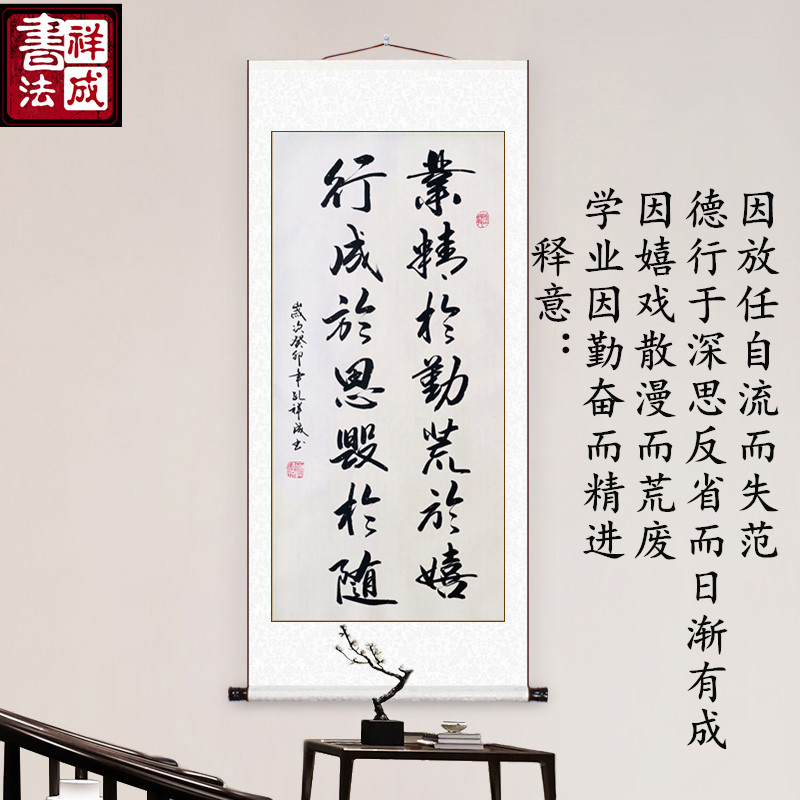 祥成
書法
業精於勤荒於嬉
行成於思毁於随
歲次癸卯年孔祥成书
释意：
学业因勤奋而精进
因嬉戏散漫而荒废
德行于深思反省而日渐有成
因放任自流而失范